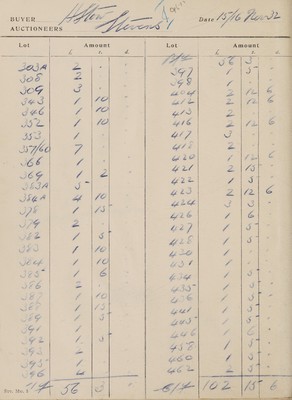 BUYER
AUCTIONEERS
Stevens
Date 15/16 Nov 32
Lot Amount
£ s. d.
303A 2
308 2
309 3
343 1 10
346 1 10
352 1 10
353 1
357/60 7
366 1
369 1 2
383A 5
384A 4 10
378 1 15
379 2
382 1 5
383 1 10
384 1 10
385 1 6
386 2
387 1 10
388 1 15
389 1 5
391 1
392 1 5
393 2
395 1
396 4
£ 56 3
Lot Amount
£ s. d.
56 3
397 1 5
398 1
404 2 12 6
412 2 12 6
413 2
416 2 12 6
417 3
418 2
420 1 12 6
421 2 15
422 1 5
423 2 12 6
424 3 3
426 1 6
427 1 5
428 1 5
430 1
431 1
434 1 5
435 1 5
436 1 5
441 1 5
445 1 5
446 1 5
458 1 5
460 1 5
462 2 5
£ 102 15 6